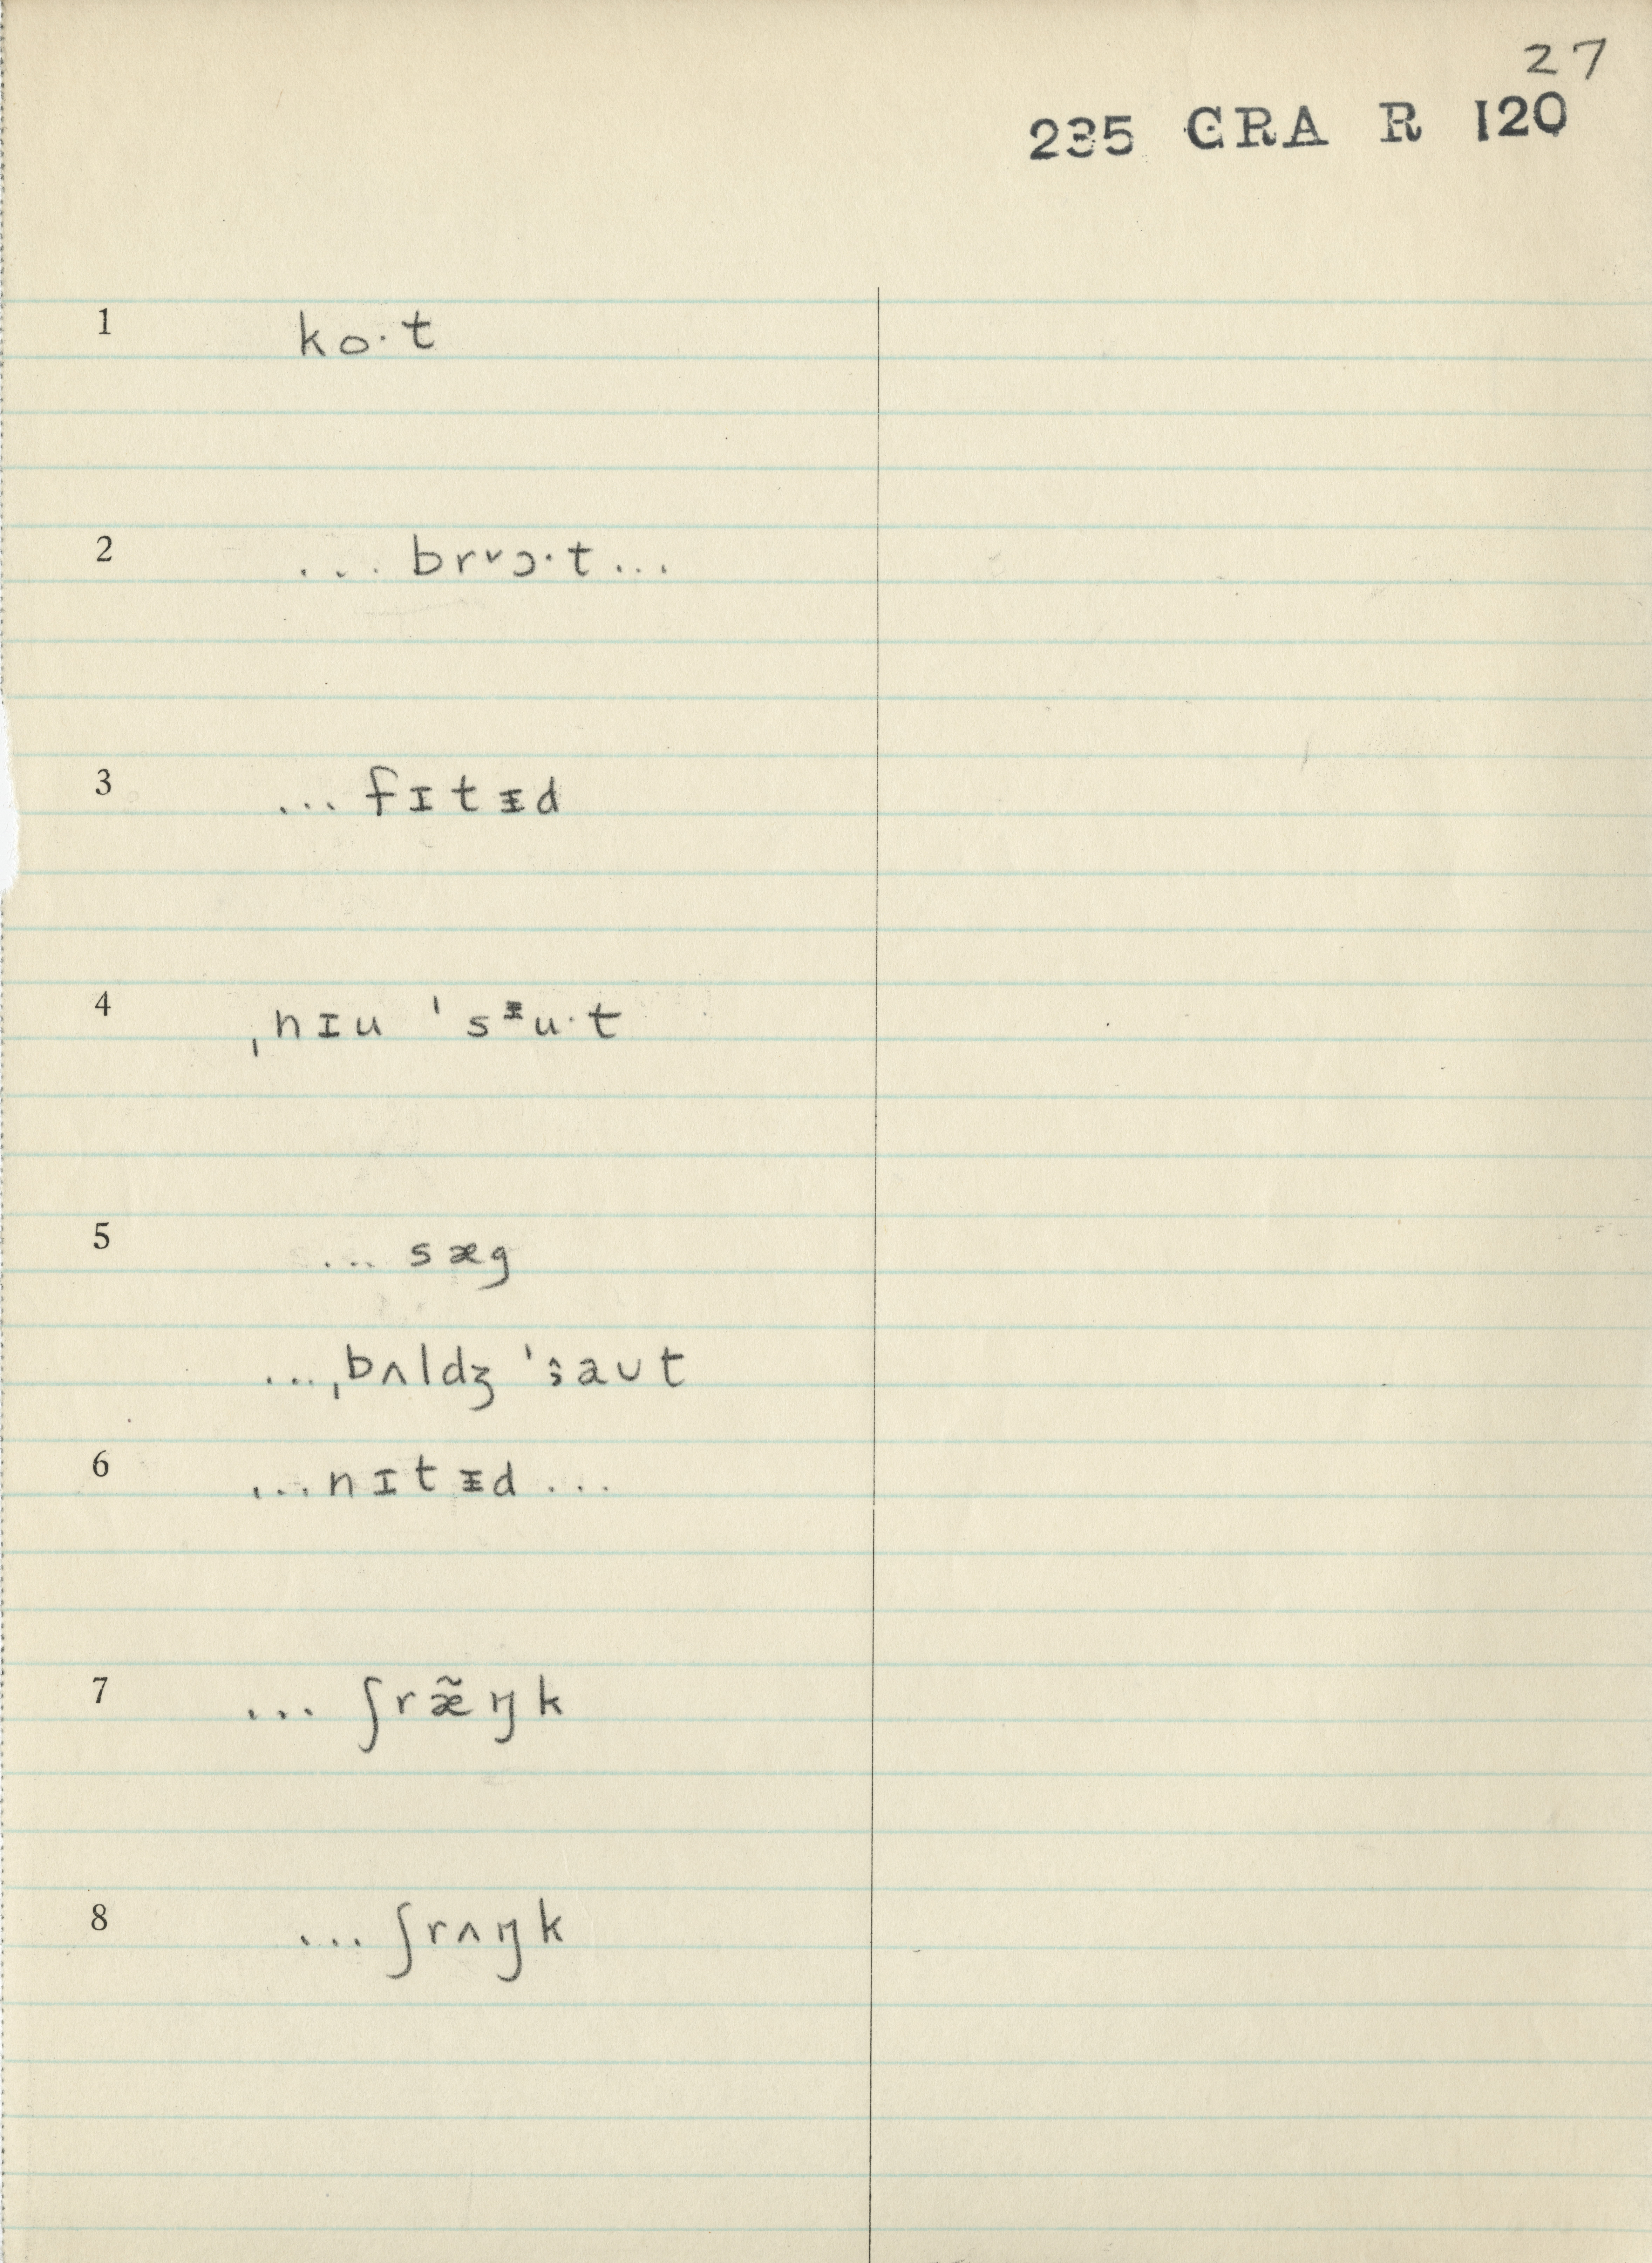 27
235 GRA R 120
1 ko·t
2 ... brᵛɔ·t ...
3 ... fɪtᵻd
4 ˌnɪu ˈsᶧu·t
5 ... sæg
... ˌbʌldʒ ˈsaʊt
6 ... nɪtᵻd ...
7 ... ʃræ̃ŋk
8 ... ʃrʌŋk